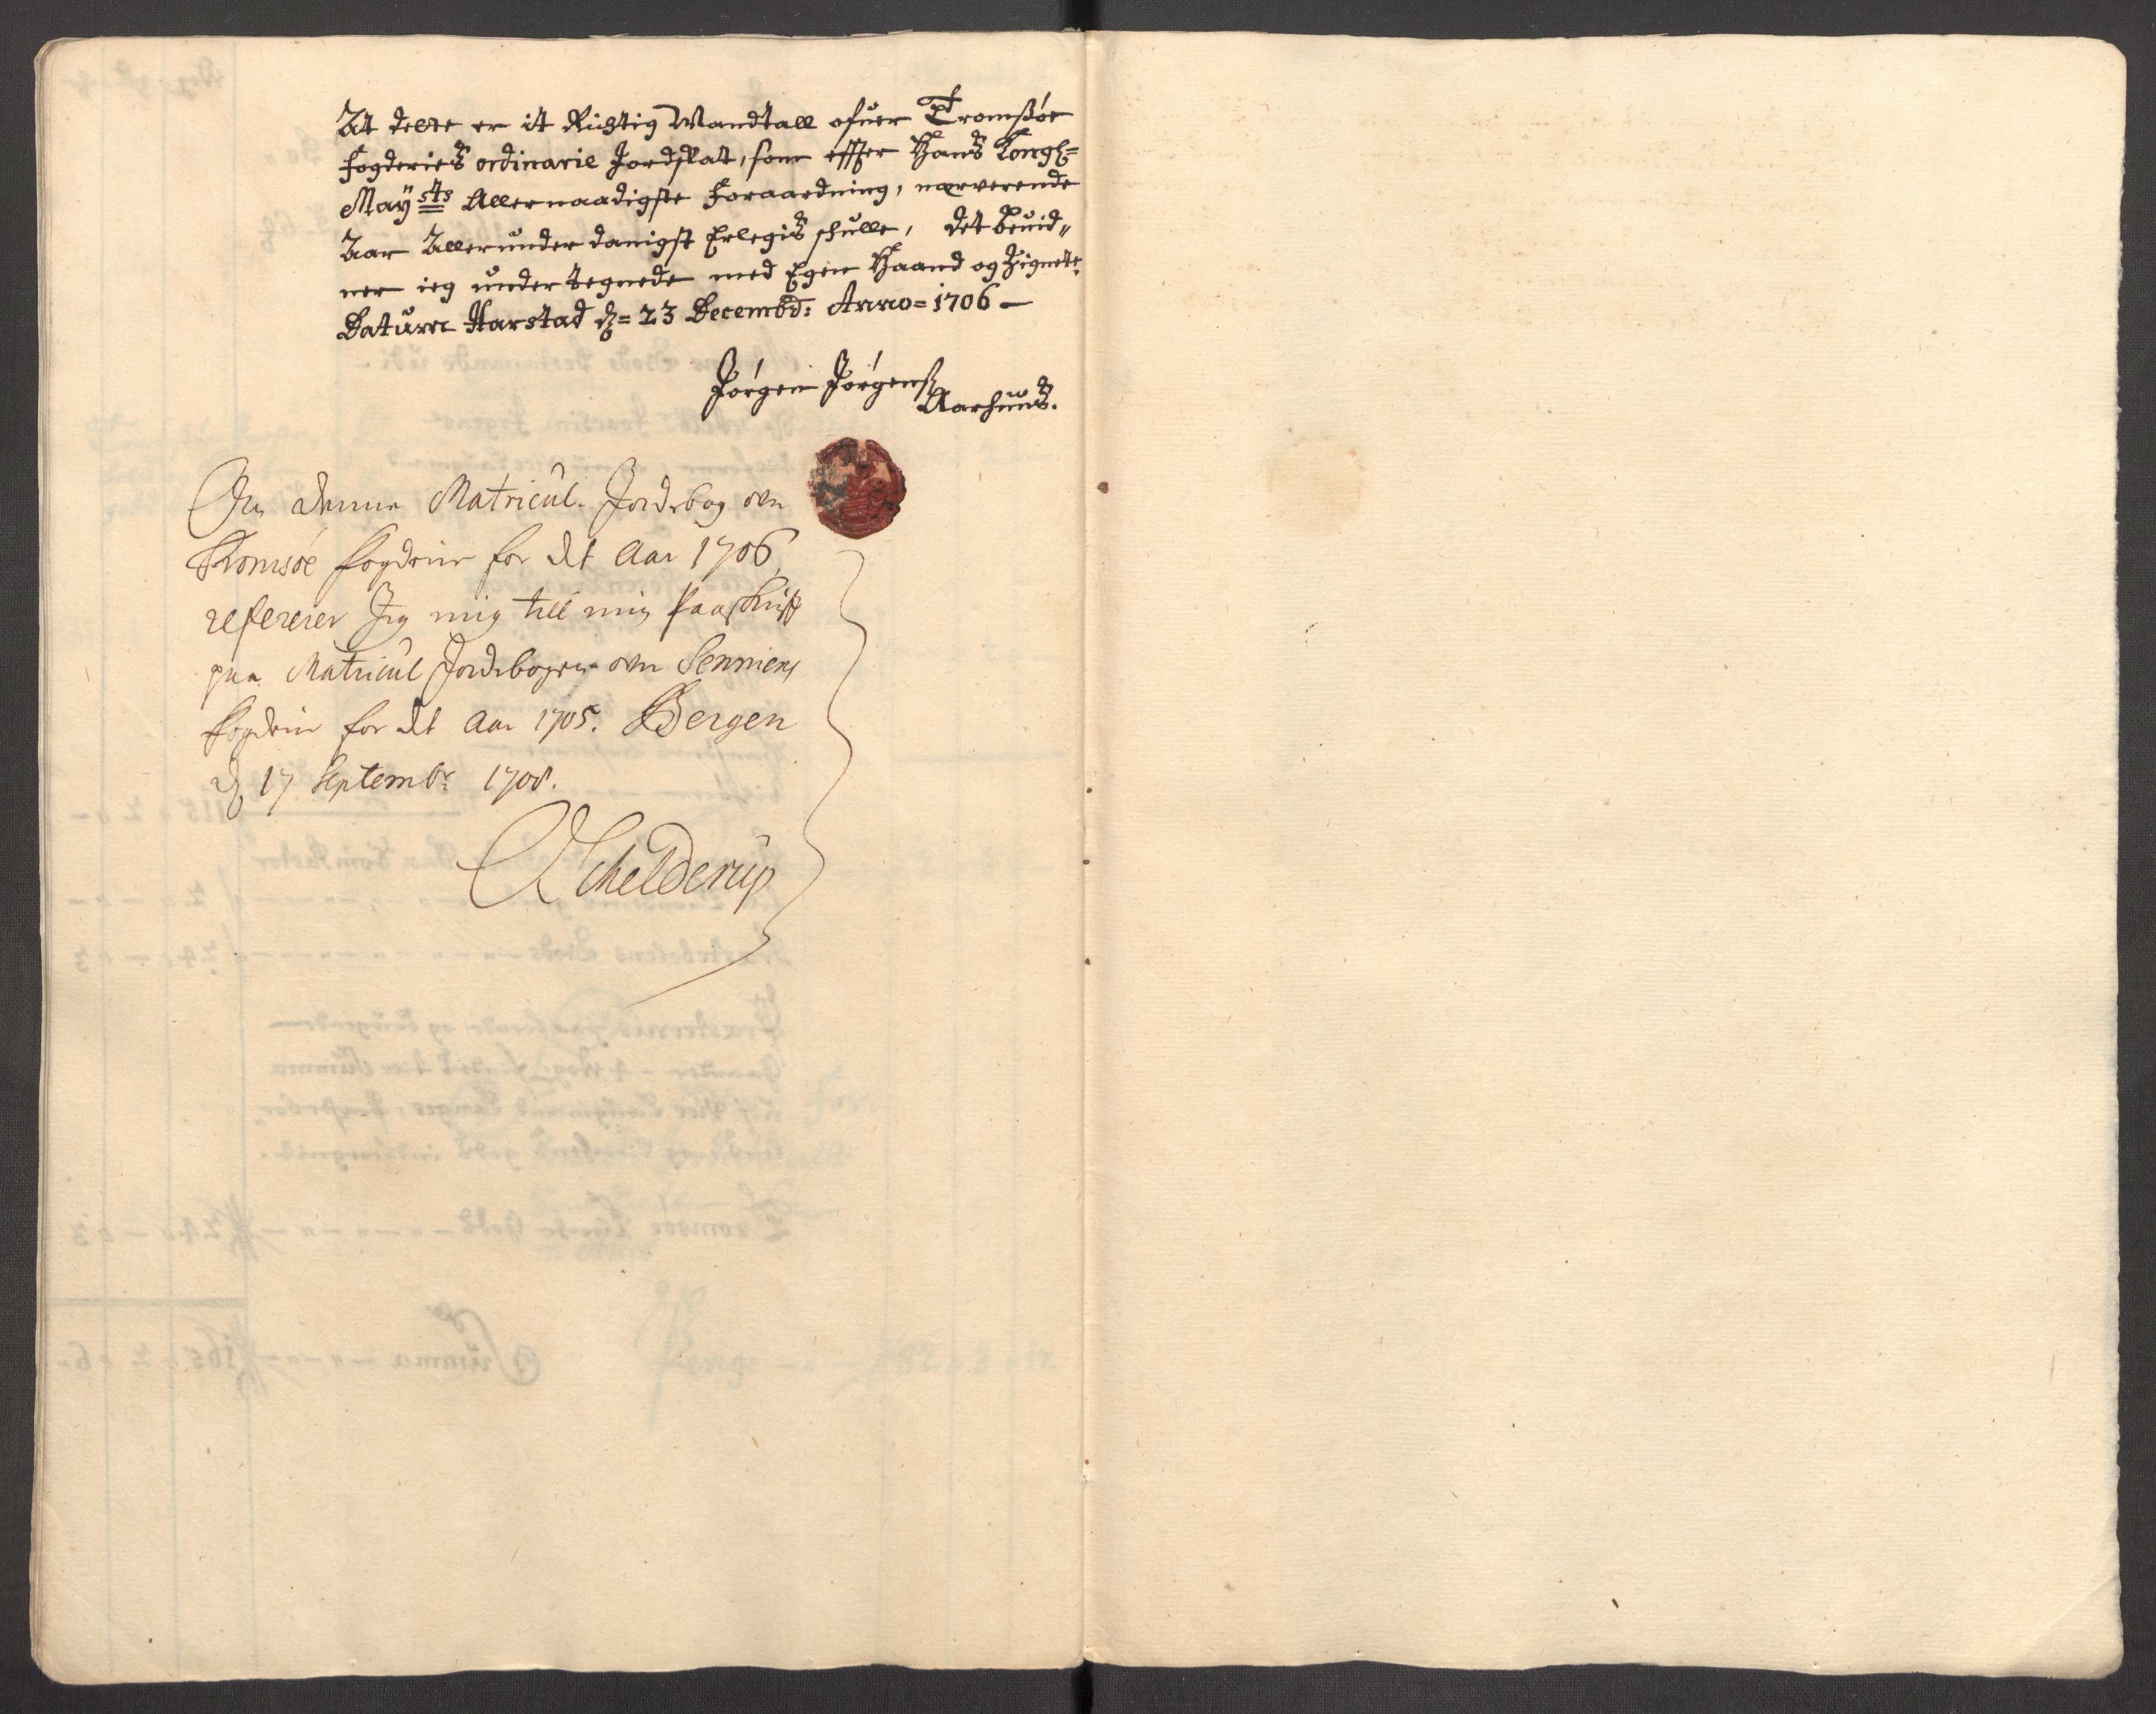 At dette er it Rigtig Mandtall ofuer Tromsøe
fogderies ordinarie Jordskat, som effter Hans Kongl=
May:sts Allernaadigste Foraardning, nærverende
Aar Allerunderdanigst Erlegis schulle, det beuid„
ner ieg undertegnede med Egen Haand og Zignette.
Datum Harstad d= 23 Decembd: Anno= 1706 —
Jørgen Jørgensß
Aarhuus.
Paa denne Matricul Jordebog ovr
Tromsøe fogderie for det Aar 1706,
refererer Jeg mig till min Paaskrifft
paa Matricul Jordebogen ovr Senniens
fogderie for det Aar 1705. Bergen
d. 17 Septembr 1708.
Schelderup